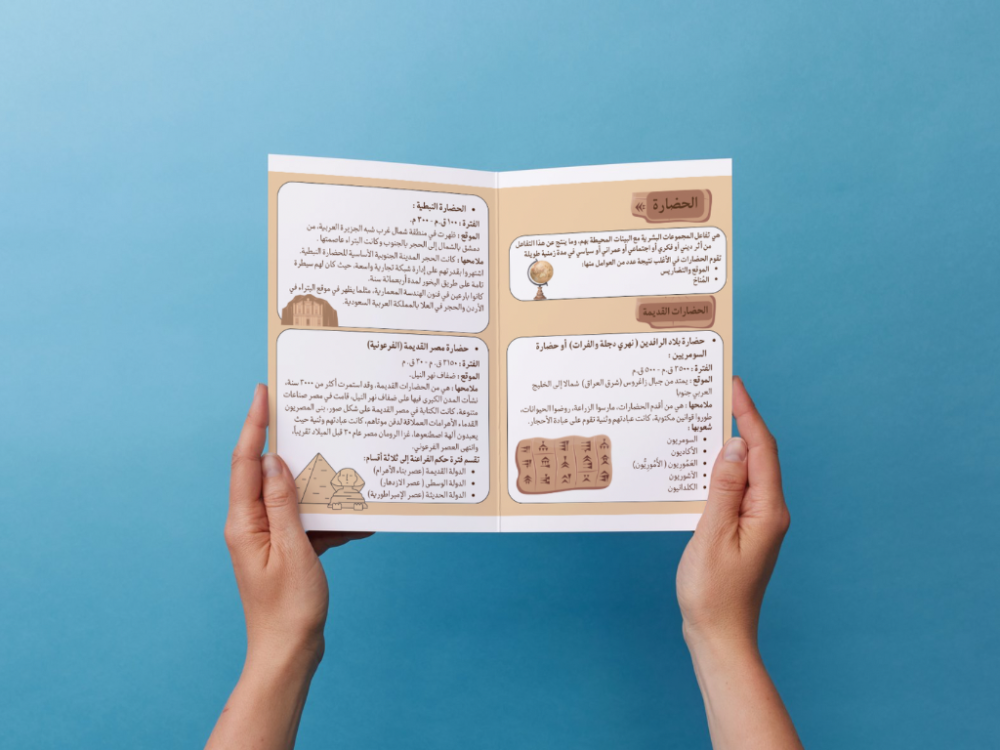 الحضارة
هي تفاعل المجموعات البشرية مع البيئات المحيطة بهم، وما ينتج عن هذا التفاعل
من أثر ديني أو فكري أو اجتماعي أو عمراني أو سياسي في مدة زمنية طويلة
تقوم الحضارات في الأغلب نتيجة عدد من العوامل منها:
• الموقع والتضاريس
• المُناخ
الحضارات القديمة
• حضارة بلاد الرافدين ( نهري دجلة والفرات ) أو حضارة
السومريين :
الفترة : ٣٥٠٠ ق.م - ٥٠٠ ق.م
الموقع : يمتد من جبال زاغروس (شرق العراق) شمالا إلى الخليج
العربي جنوبا
ملامحها : هي من أقدم الحضارات، مارسوا الزراعة، روضوا الحيوانات،
طوروا قوانين مكتوبة، كانت عبادتهم وثنية تقوم على عبادة الأحجار.
شعوبها :
• السومريون
• الأكاديون
• العَمُّوريون ( الأَمُوريُّون)
• الآشوريون
• الكلدانيون
• الحضارة النبطية :
الفترة : ١٠٠ ق.م - ٣٠٠ م.
الموقع : ظهرت في منطقة شمال غرب شبه الجزيرة العربية، من
دمشق بالشمال إلى الحجر بالجنوب وكانت البتراء عاصمتها .
ملامحها : كانت الحجر المدينة الجنوبية الأساسية للحضارة النبطية.
اشتهروا بقدرتهم على إدارة شبكة تجارية واسعة، حيث كان لهم سيطرة
تامة على طريق البخور لمدة أربعمائة سنة.
كانوا بارعين في فنون الهندسة المعمارية، مثلما يظهر في موقع البتراء في
الأردن والحجر في العلا بالمملكة العربية السعودية.
• حضارة مصر القديمة (الفرعونية)
الفترة : ٣١٥٠ ق.م - ٣٠ ق.م
الموقع : ضفاف نهر النيل.
ملامحها : هي من الحضارات القديمة، وقد استمرت أكثر من ٣٠٠٠ سنة،
نشأت المدن الكبرى فيها على ضفاف نهر النيل، قامت في مصر صناعات
متنوعة، كانت الكتابة في مصر القديمة على شكل صور، بنى المصريون
القدماء الأهرامات العملاقة لدفن موتاهم، كانت عبادتهم وثنية حيث
يعبدون آلهة اصطنعوها، غزا الرومان مصر عام ٣٠ قبل الميلاد تقريباً،
وانتهى العصر الفرعوني.
تقسم فترة حكم الفراعنة إلى ثلاثة أقسام:
• الدولة القديمة (عصر بناء الأهرام)
• الدولة الوسطى ( عصر الازدهار)
• الدولة الحديثة (عصر الإمبراطورية)